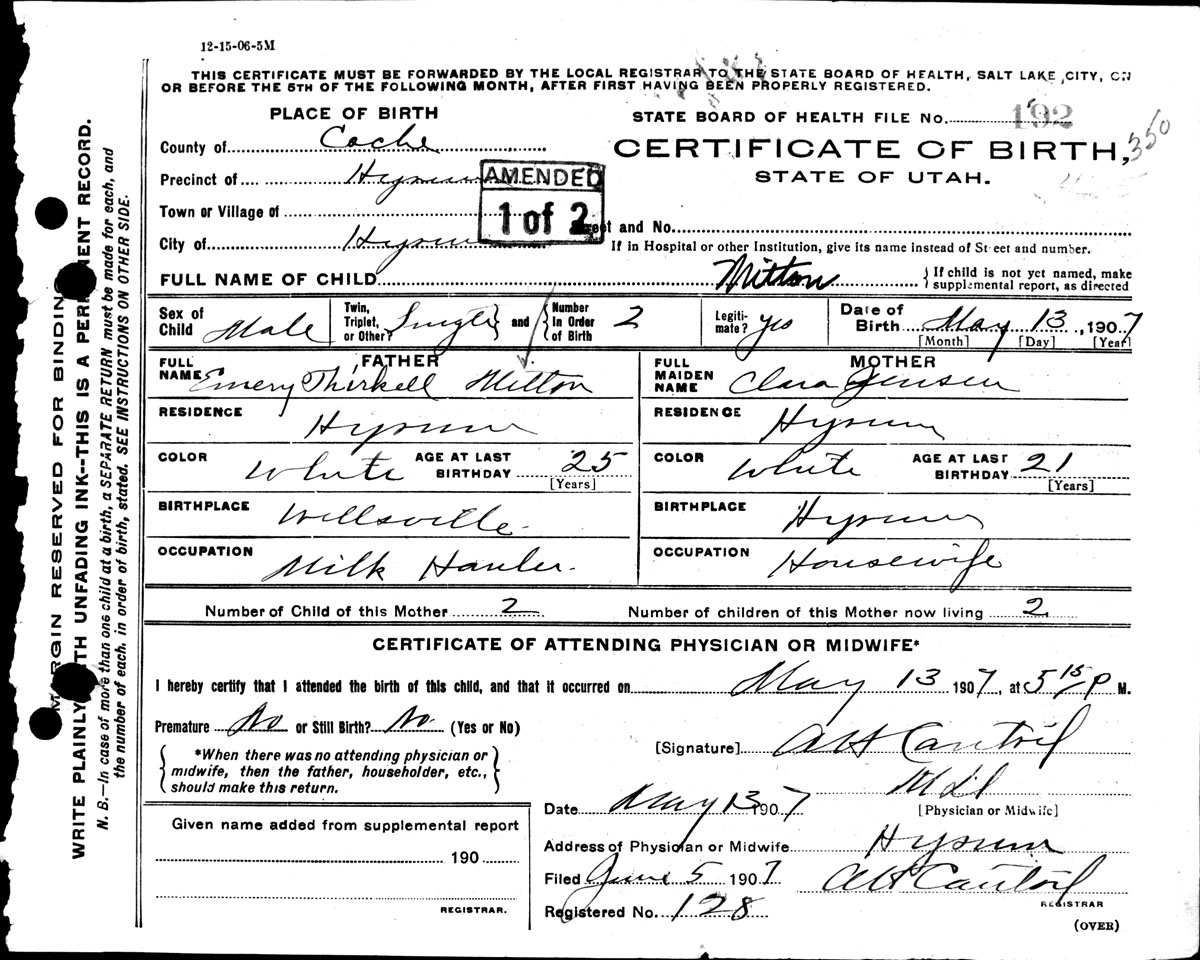 12-15-06-5M
THIS CERTIFICATE MUST BE FORWARDED BY THE LOCAL REGISTRAR TO THE STATE BOARD OF HEALTH, SALT LAKE CITY, ON
OR BEFORE THE 5TH OF THE FOLLOWING MONTH, AFTER FIRST HAVING BEEN PROPERLY REGISTERED.
PLACE OF BIRTH
STATE BOARD OF HEALTH FILE No. 192
County of Cache
CERTIFICATE OF BIRTH, 350
STATE OF UTAH.
Precinct of Hyrum
AMENDED
1 of 2
Town or Village of
Street and No.
City of Hyrum
If in Hospital or other Institution, give its name instead of Street and number.
FULL NAME OF CHILD Mitton
If child is not yet named, make
supplemental report, as directed
Sex of Child Male
Twin, Triplet, or Other? Single and Number In Order of Birth 2
Legiti-mate? yes
Date of Birth May 13, 1907
[Month] [Day] [Year]
FATHER
FULL NAME Emery Thirkell Mitton
MOTHER
FULL MAIDEN NAME Clara Jensen
RESIDENCE Hyrum
RESIDENCE Hyrum
COLOR White AGE AT LAST BIRTHDAY 25 [Years]
COLOR White AGE AT LAST BIRTHDAY 21 [Years]
BIRTHPLACE Wellsville
BIRTHPLACE Hyrum
OCCUPATION Milk Hauler
OCCUPATION Housewife
Number of Child of this Mother 2 Number of children of this Mother now living 2
CERTIFICATE OF ATTENDING PHYSICIAN OR MIDWIFE*
I hereby certify that I attended the birth of this child, and that it occurred on May 13 1907, at 5 15/ P M.
Premature No or Still Birth? No. (Yes or No)
*When there was no attending physician or
midwife, then the father, householder, etc.,
should make this return.
[Signature] AH Cantril
MD
[Physician or Midwife]
Date May 13 1907
Given name added from supplemental report
190
REGISTRAR.
Address of Physician or Midwife Hyrum
Filed June 5 1907 AH Cantril
REGISTRAR
Registered No. 128
(OVER)
MARGIN RESERVED FOR BINDING
WRITE PLAINLY WITH UNFADING INK--THIS IS A PERMANENT RECORD.
N. B.—In case of more than one child at a birth, a SEPARATE RETURN must be made for each, and
the number of each, in order of birth, stated. SEE INSTRUCTIONS ON OTHER SIDE.